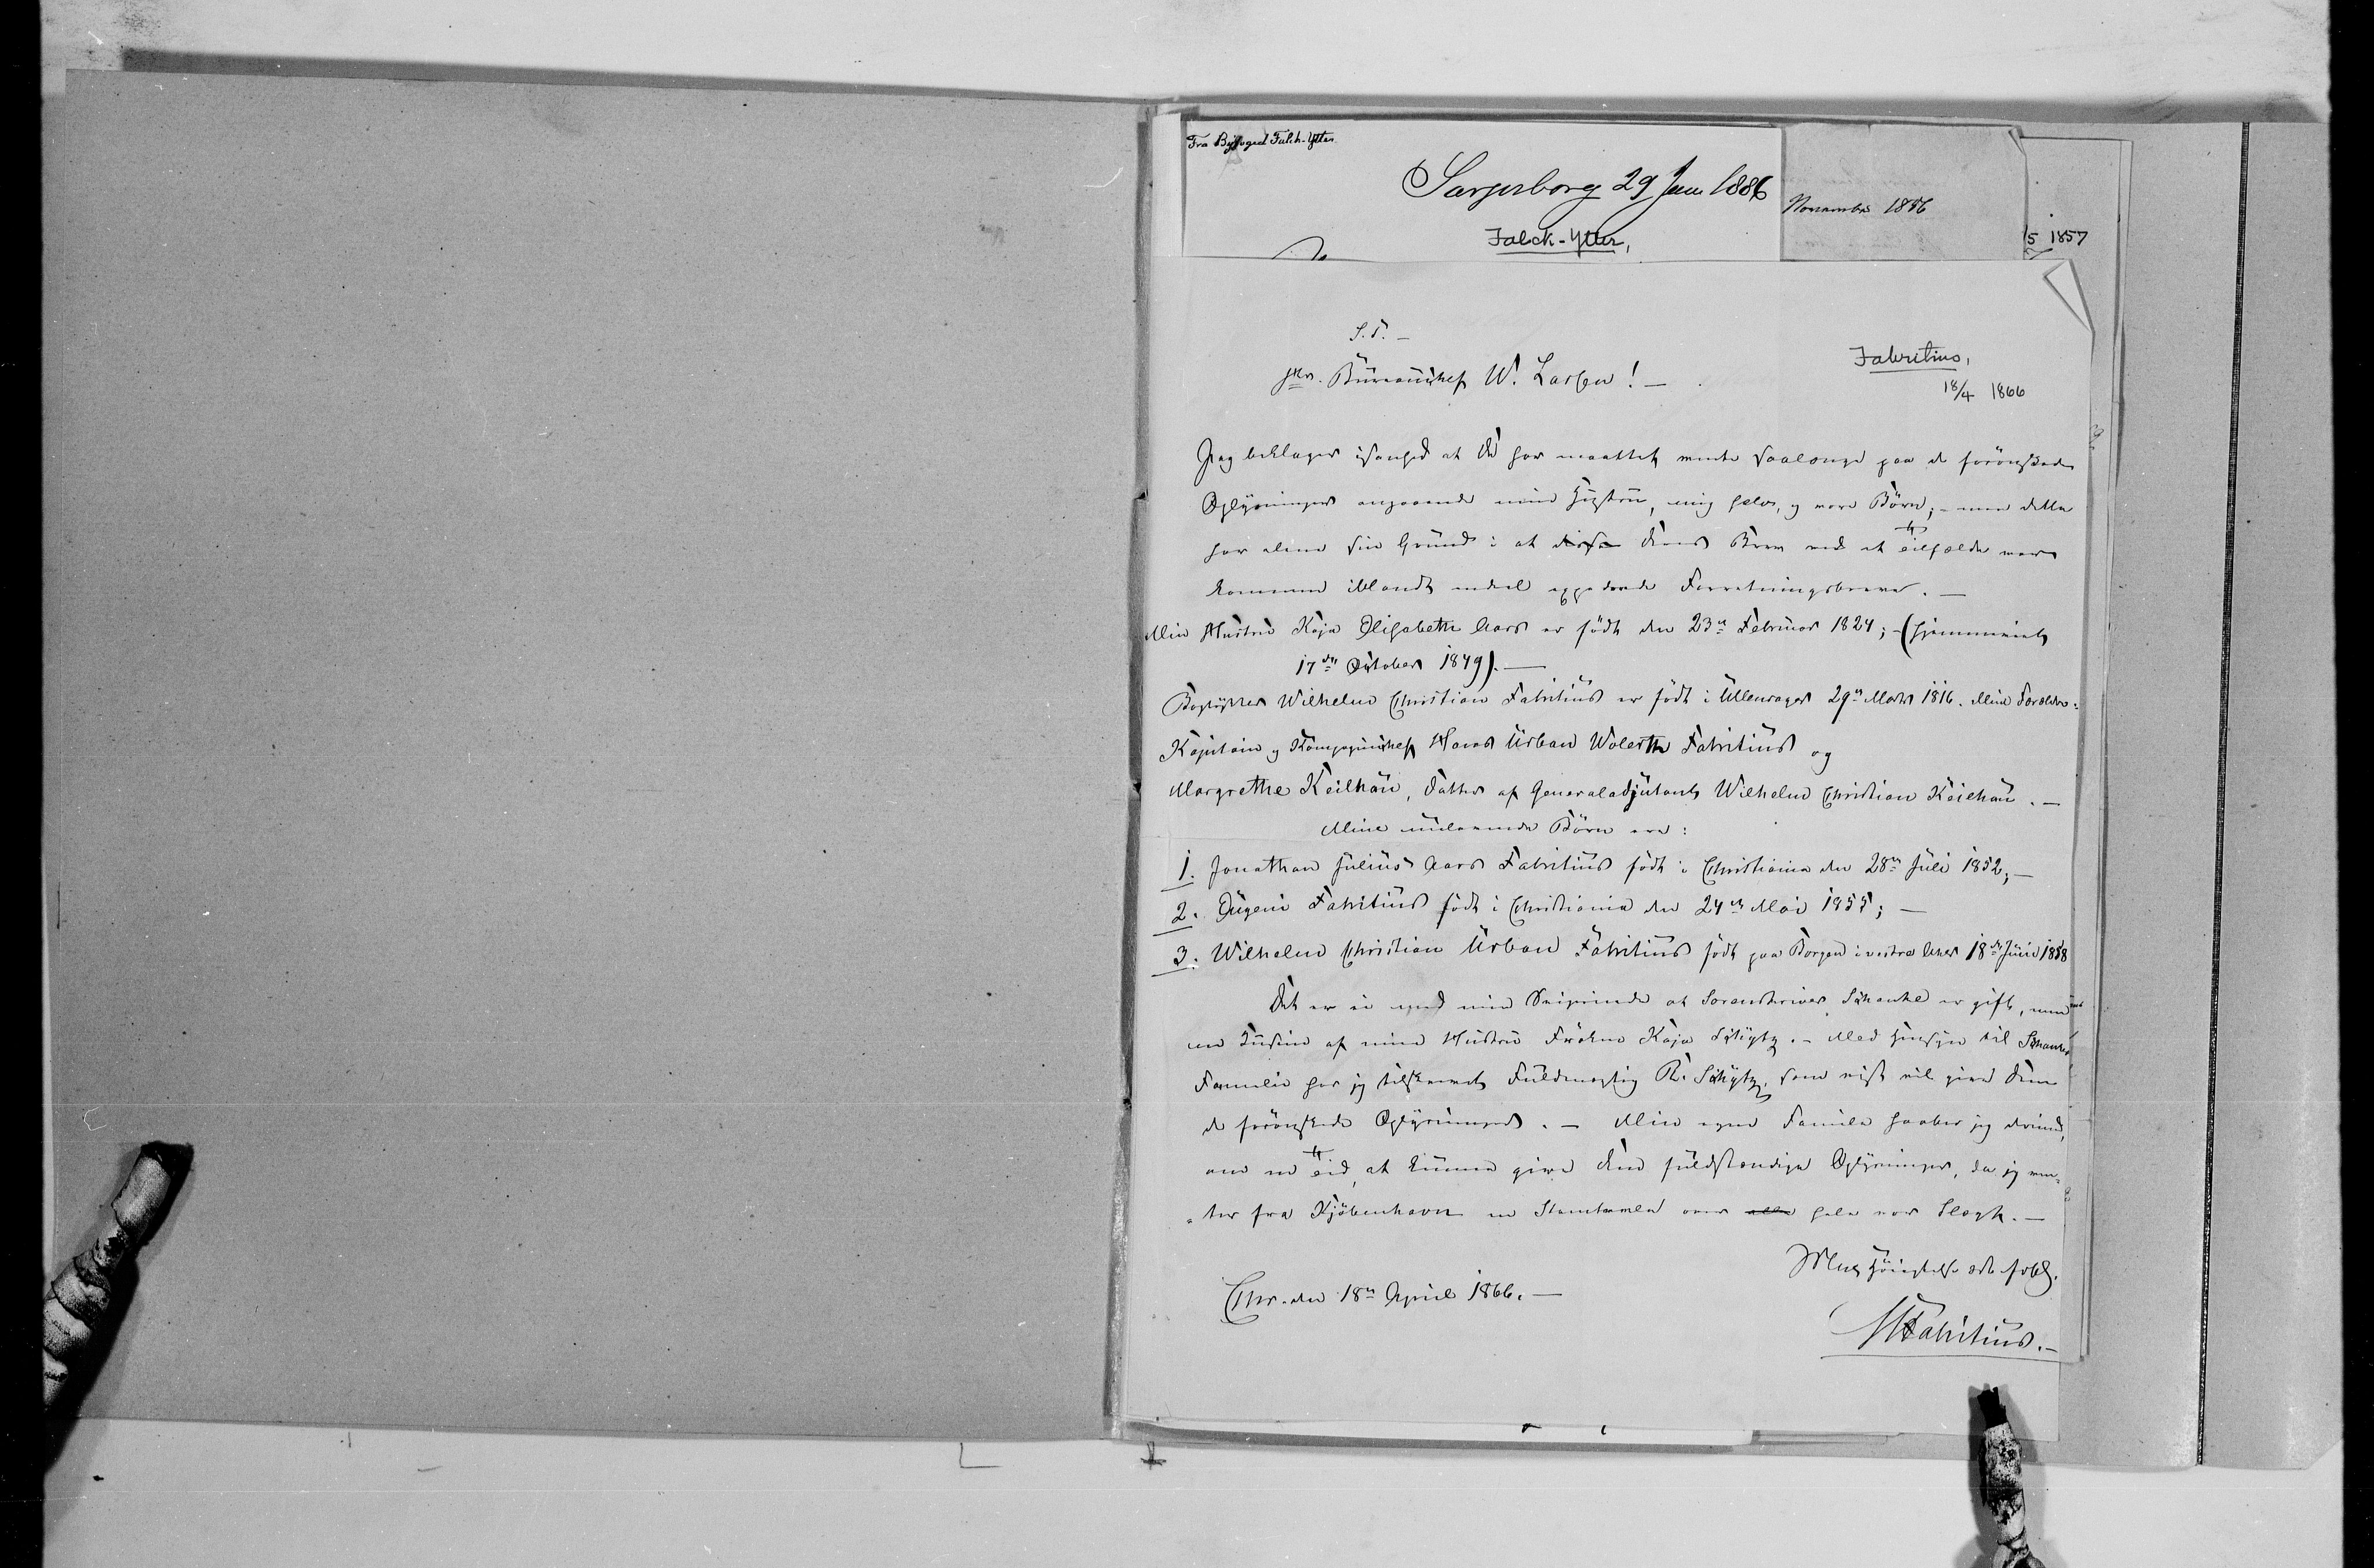 Fra Byfoged Falch-Ytter
Sarpsborg 29 Jan 1886
Falck-Ytter,
November 1886
15 1857
S.T. –
Hr. Bureauchef W. Lassen! –
Fabritius,
18/4 1866
Jeg beklager at De har maattet vente saalænge paa de forönskede
Oplysninger angaaende min Hustru, mig selv, og vore Börn; – men dette
har alene sin Grund i at Deres Brev ved et Tilfælde var
kommen iblandt endel Forretningsbreve. –
Min Hustru Kaja Elisabeth Aars er födt den 23de Februar 1824; – (hjemmeviet
17de October 1849). –
Bogtrykker Wilhelm Christian Fabritius er födt i Ullensager 29de Marts 1816. Mine Forældre:
Kaptain og Kompagnichef Hans Urban Wolerth Fabritius og
Margrethe Keilhau, Datter af Generaladjutant Wilhelm Christian Keilhau. –
Mine nulevende Börn ere:
1. Jonathan Julius Aars Fabritius födt i Christiania den 28de Juli 1852; –
2. Eugenie Fabritius födt i Christiania den 24de Mai 1855; –
3. Wilhelm Christian Urban Fabritius födt paa Borgen i vestre Aker 18de Juni 1858
Det er ei med min Svigerinde at Sorenskriver Schanke er gift, men med
en Kusine af min Hustru Frökne Kaja Schytz. – Med Hensyn til Schankes
Familie har jeg tilskrevet Fuldmægtig R. Schytz, som vist vil give Dem
de forönskede Oplysninger. – Min egen Familie haaber jeg derimod,
om en Tid, at kunne give Dem fuldstændige Oplysninger, da jeg ven-
ter fra Kjöbenhavn en Stamtavle over alle hele vor Slægt. –
Med Höiagtelse
Chr. den 18de April 1866. –
WFabritius. –